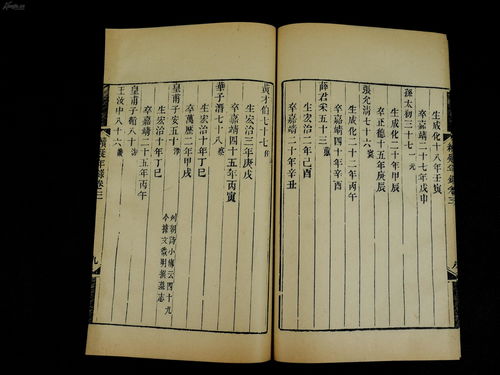 生成化十八年壬寅
卒嘉靖二十七年戊申
孫太初三十七一元
生成化二十年甲辰
卒正德十五年庚辰
張允清七十六寰
生成化二十二年丙午
卒嘉靖
薛君采五十三蕙
生宏治二年己酉
卒嘉靖二十年辛丑
續疑年錄卷三
八
黃才伯七十七佐
生宏治三年庚戌
卒嘉靖四十五年丙寅
華子潛七十八察
生宏治十年丁巳
卒萬歷二年甲戌
皇甫子安五十涍
生宏治十年丁巳
卒嘉靖二十五年丙午
列朝詩小傳云四十九
今據文徵明撰墓志
皇甫子循八十汸
王汝中八十六畿
續疑年錄卷三
九